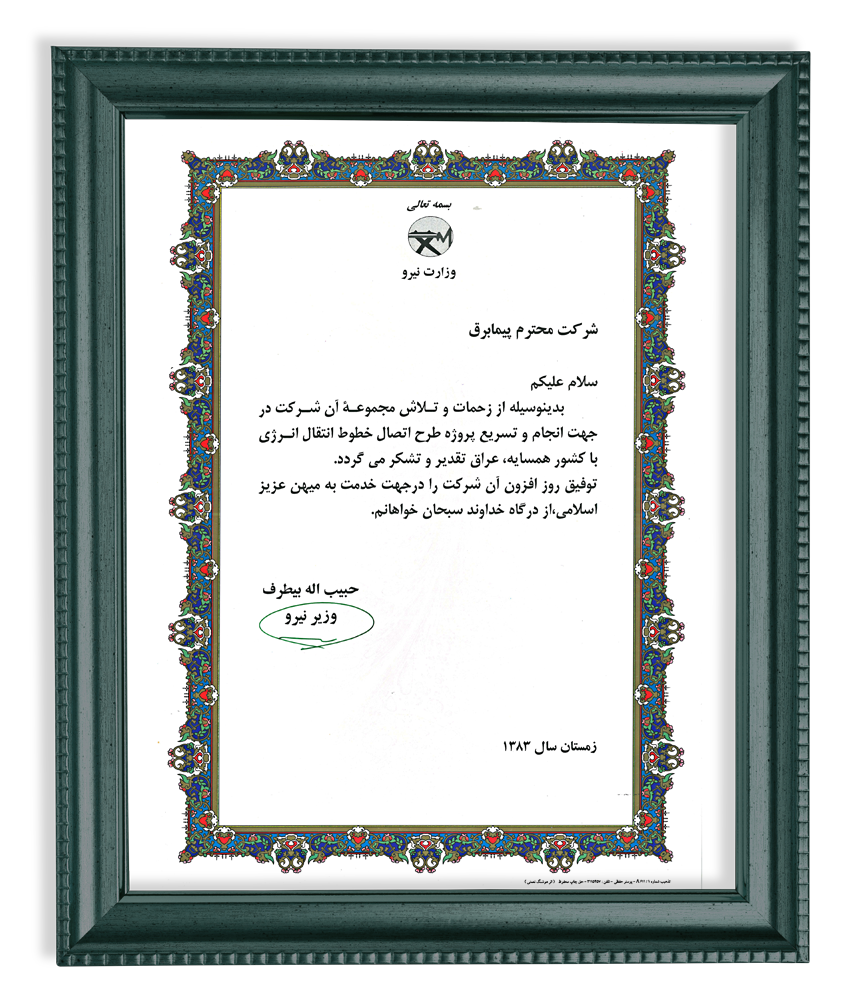 بسمه تعالی
وزارت نیرو
شرکت محترم پیمابرق
سلام علیکم
بدینوسیله از زحمات و تـلاش مجموعـهٔ آن شـرکت در
جهت انجام و تسریع پروژه طرح اتصال خطوط انتقال انـرژی
با کشور همسایه، عراق تقدیر و تشکر می گردد.
توفیق روز افزون آن شرکت را درجهت خدمت به میهن عزیز
اسلامی،از درگاه خداوند سبحان خواهانم.
حبیب اله بیطرف
وزیر نیرو
زمستان سال ۱۳۸۳